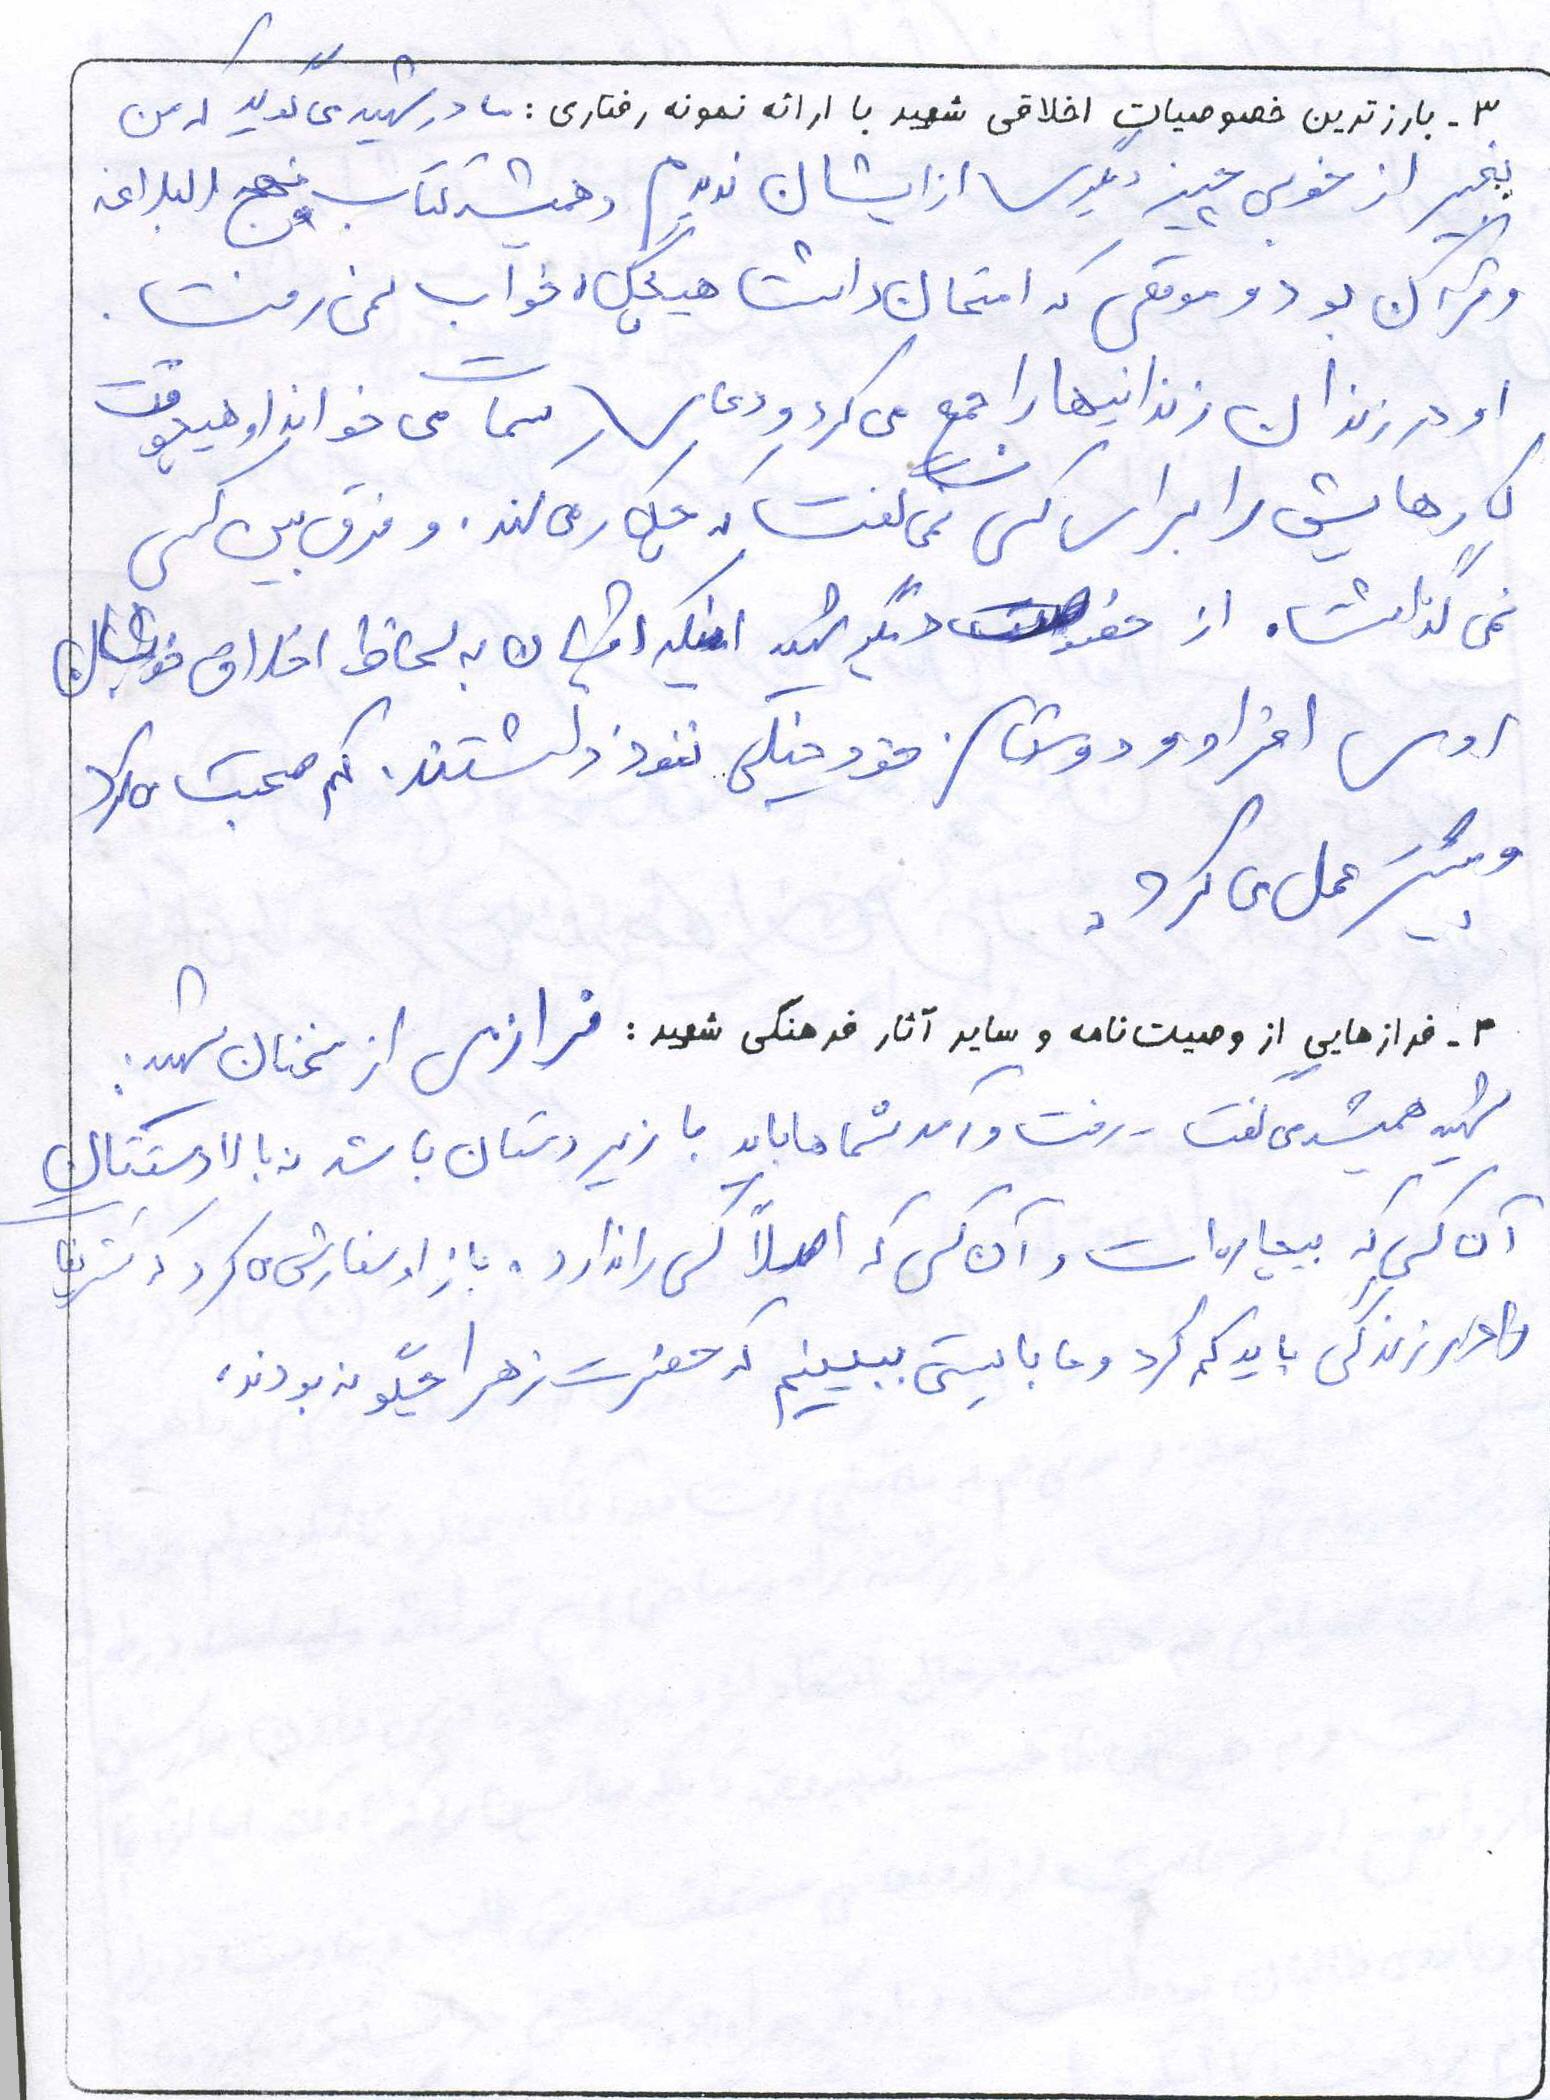 ۳ـ بارزترین خصوصیات اخلاقی شهید با ارائه نمونه رفتاری: مادر شهید می گوید که من
بغیر از خوبی چیز دیگری از ایشان ندیدم و همیشه کتاب نهج البلاغه
و قرآن بود و موقعی که امتحان داشت هیچگاه خواب نمی رفت.
او در زندان زندانیها را جمع می کرد و دعای سمات می خواند او هیچوقت
کارهایش را برای کسی نمی گفت که چکار می کند. و فرق بین کسی
نمی گذاشت. از دیگر شهید اینکه ایشان به لحاظ اخلاق خوبشان
روی افراد و دوستان خود خیلی نفوذ داشتند. کم صحبت می کرد
و بیشتر عمل می کرد.
۴ـ فرازهایی از وصیت نامه و سایر آثار فرهنگی شهید: فرازی از سخنان شهید:
شهید همیشه می گفت - رفت و آمد شماها باید با زیر دستان باشد نه بالا دستتان
آن کسی که بیچاره است و آن کسی که اصلاً کسی را ندارد. باز او سفارش می کرد که
زندگی باید کم کرد و ما بایستی ببینیم که حضرت زهرا چگونه بودند.